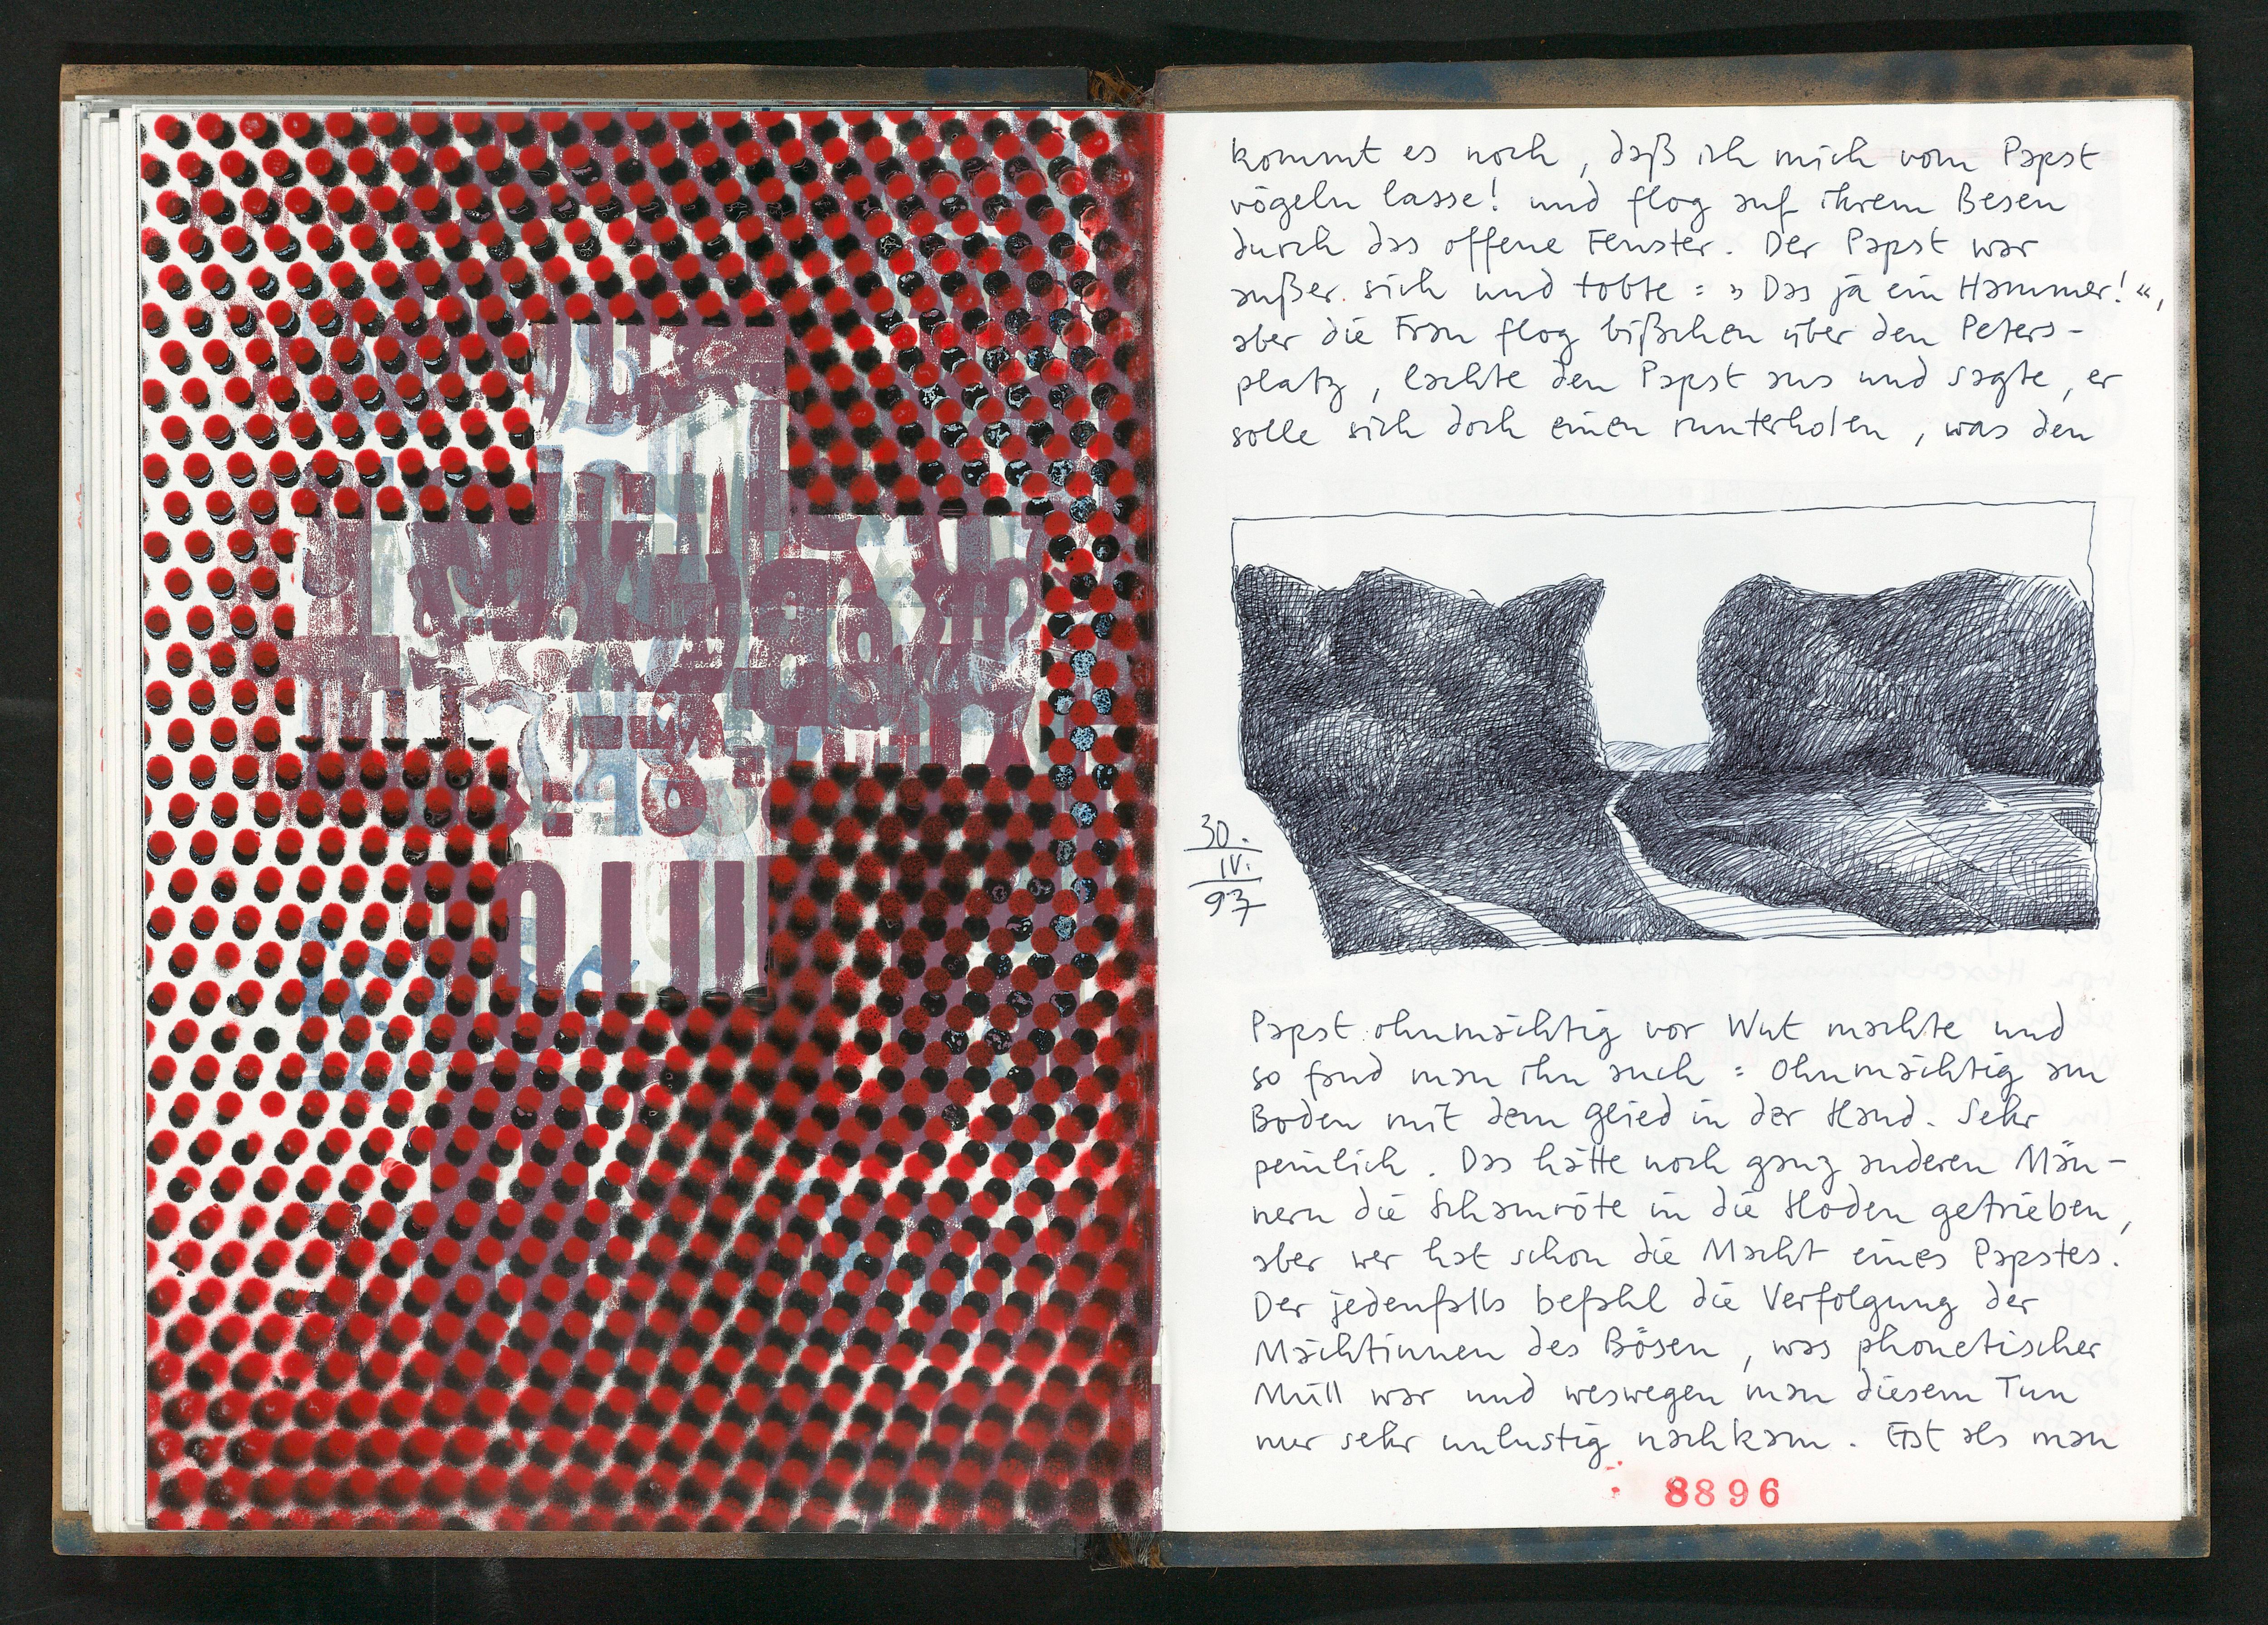 kommt es noch, daß ich mich vom Papst
vögeln lasse! und flog auf ihrem Besen
durch das offene Fenster. Der Papst war
außer sich und tobte: »Das ja ein Hammer!«,
aber die Frau flog bißchen über den Peters-
platz, lachte den Papst aus und sagte, er
solle sich doch einen runterholen, was den
30.
IV.
97
Papst ohnmächtig vor Wut machte und
so fand man ihn auch: Ohnmächtig am
Boden mit dem Glied in der Hand. Sehr
peinlich. Das hätte noch ganz anderen Män-
nern die Schamröte in die Hoden getrieben,
aber wer hat schon die Macht eines Papstes.
Der jedenfalls befahl die Verfolgung der
Mächtinnen des Bösen, was phonetischer
Müll war und weswegen man diesem Tun
nur sehr unlustig nachkam. Erst als man
8896